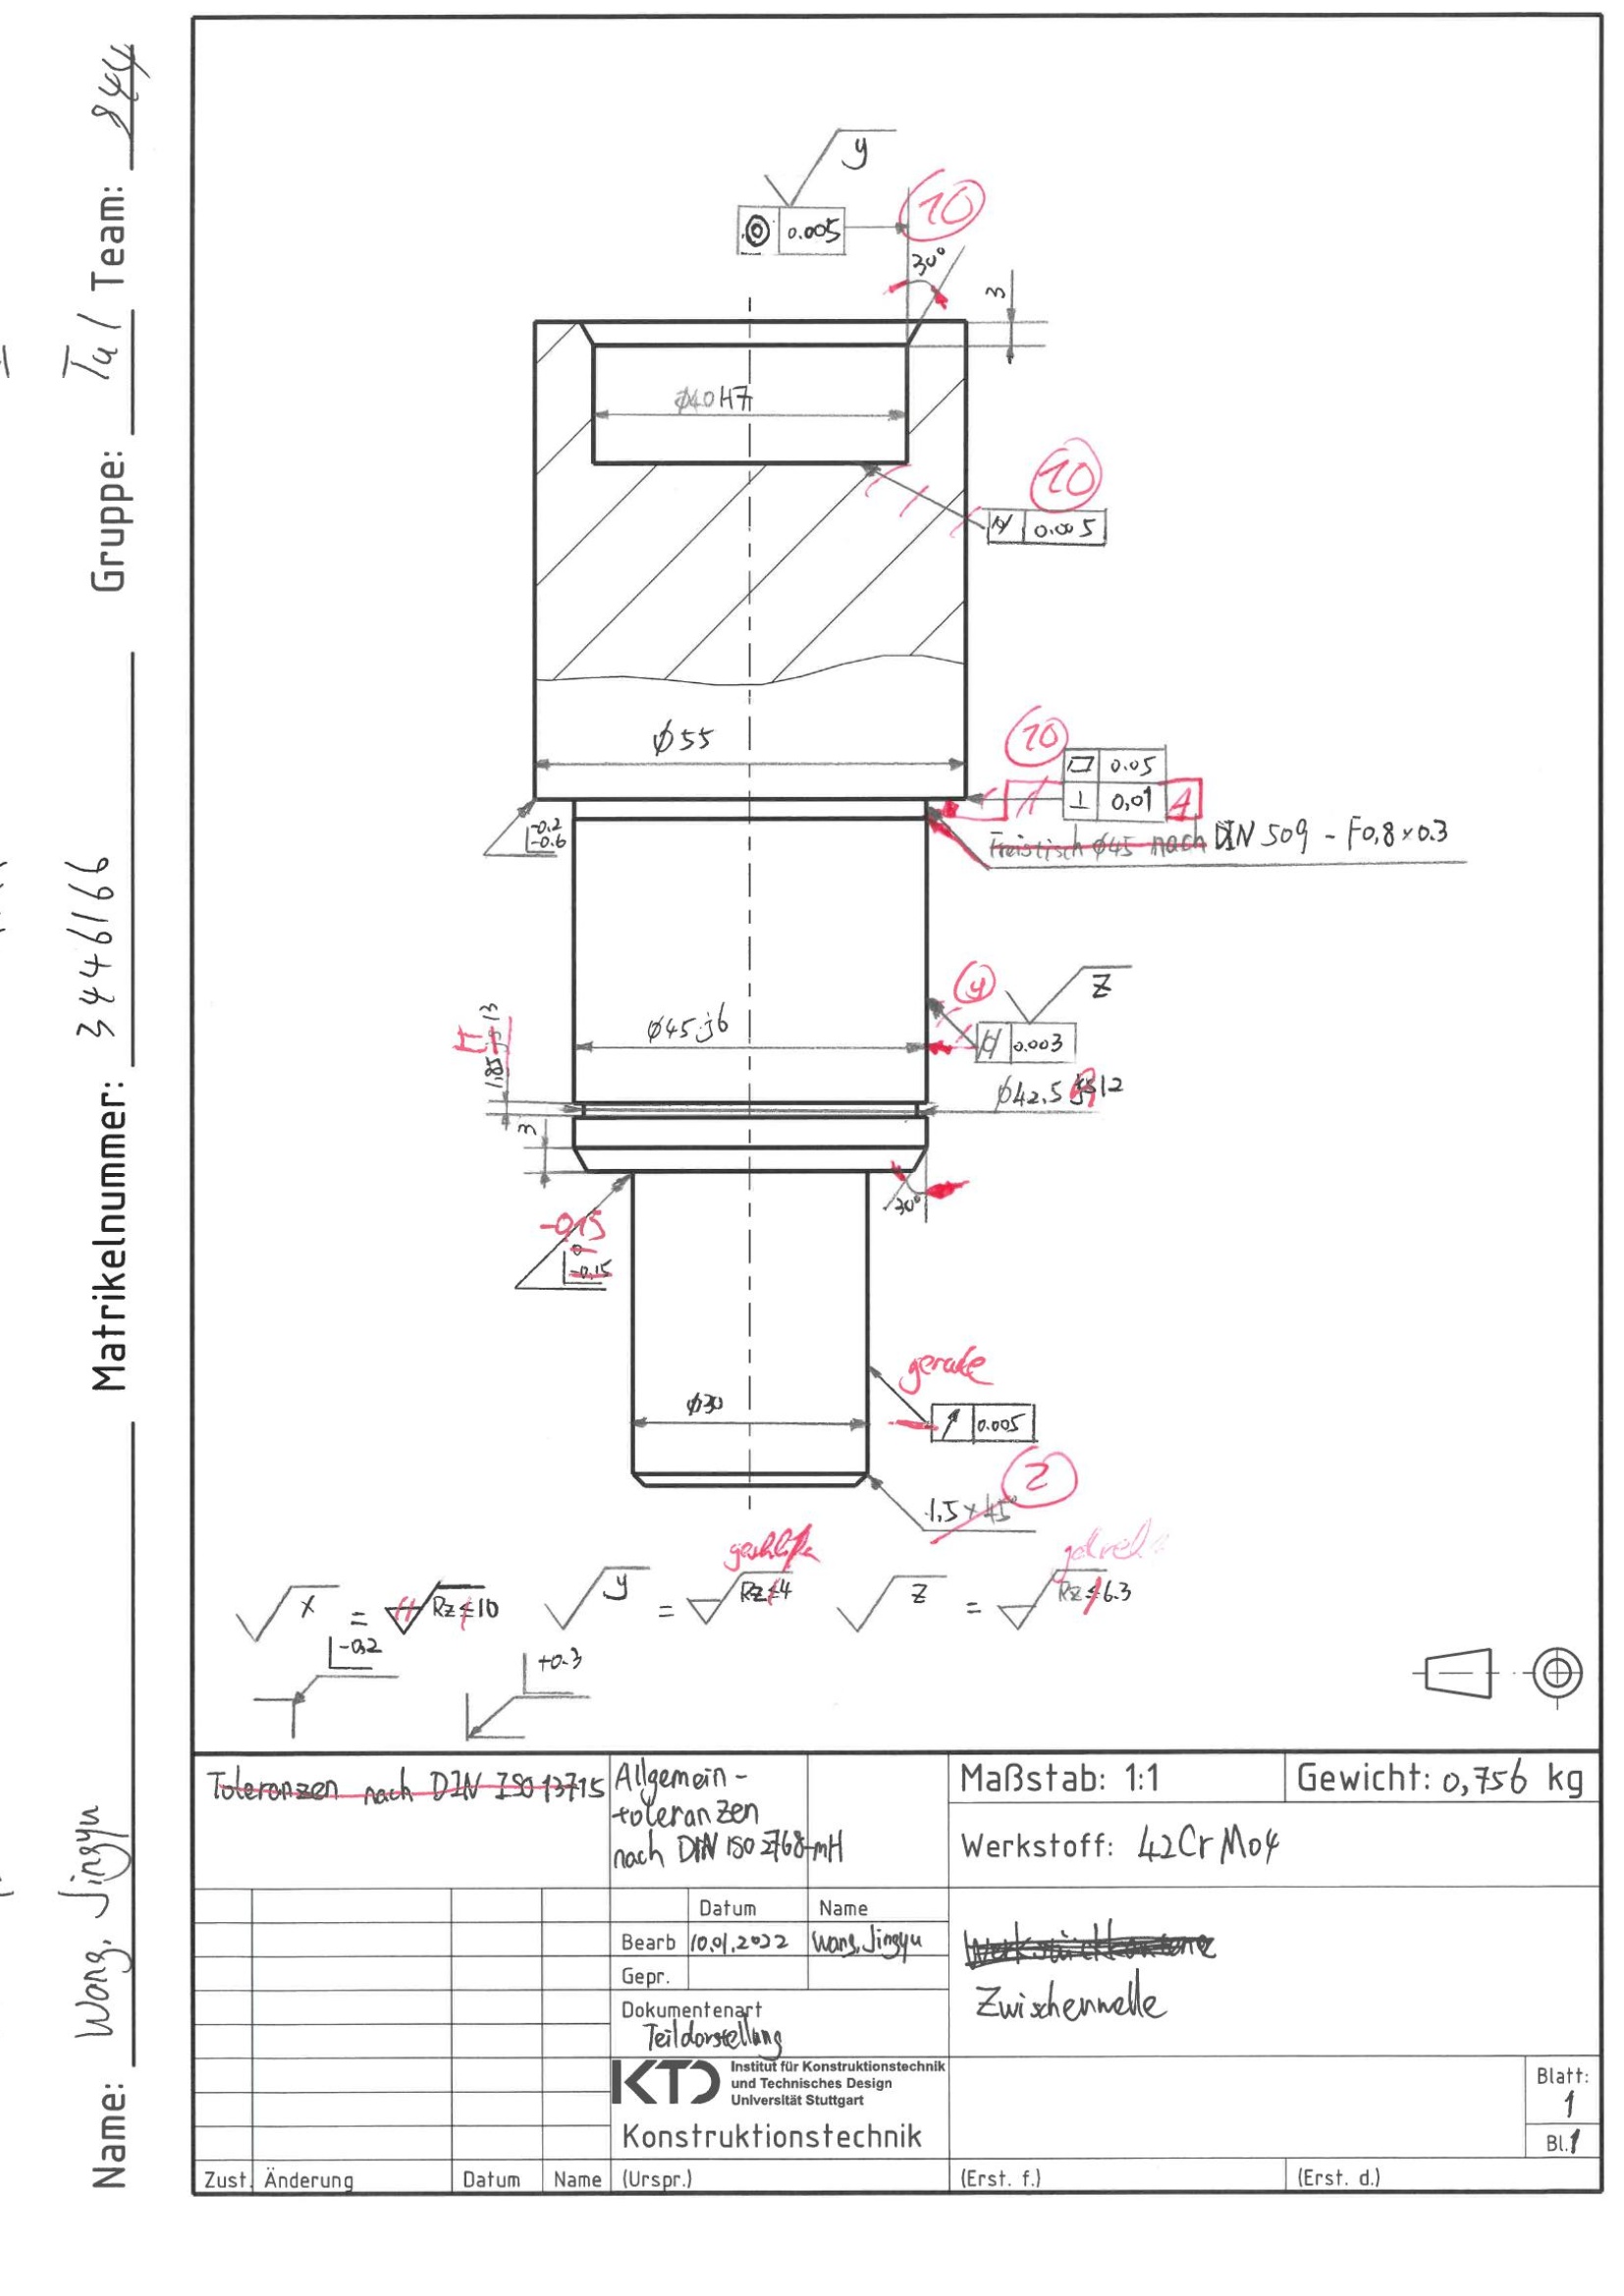 Name: Wang, Jingyu Matrikelnummer: 3446166 Gruppe: Team: 844
y
0.005
10
30°
3
⌀40H7
10
0.005
⌀55
10
0.05
0,01 A
-0.2
-0.6
Freistisch ⌀45 nach DIN 509 - F0,8×0.3
y
z
0.003
⌀45j6
1,85 js 13
⌀42.5 12
3
30°
-0,15
0
-0,15
gerade
⌀30
0.005
2
1,5×45°
x = Rz≤10
y = Rz≤4
z = Rz≤6.3
-0.2
+0.3
Toleranzen nach DIN ISO 13715
Allgemein-
toleranzen
nach DIN ISO 2768-mH
Maßstab: 1:1
Gewicht: 0,756 kg
Werkstoff: 42CrMo4
Datum Name
Bearb 10.01.2022 Wang, Jingyu
Gepr.
Zwischenwelle
Dokumentenart
Teildarstellung
KTD Institut für Konstruktionstechnik
und Technisches Design
Universität Stuttgart
Konstruktionstechnik
Blatt:
1
Bl.1
Zust. Änderung Datum Name (Urspr.) (Erst. f.) (Erst. d.)